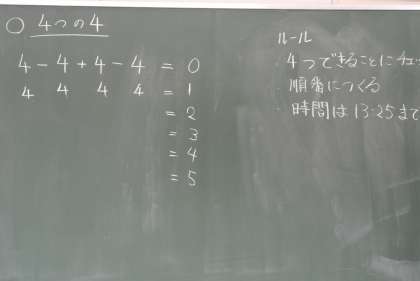 ○ 4つの4
4-4+4-4 = 0
4 4 4 4 = 1
= 2
= 3
= 4
= 5
ルール
・4つできるごとにチェ
・順番につくる
・時間は13:25まで